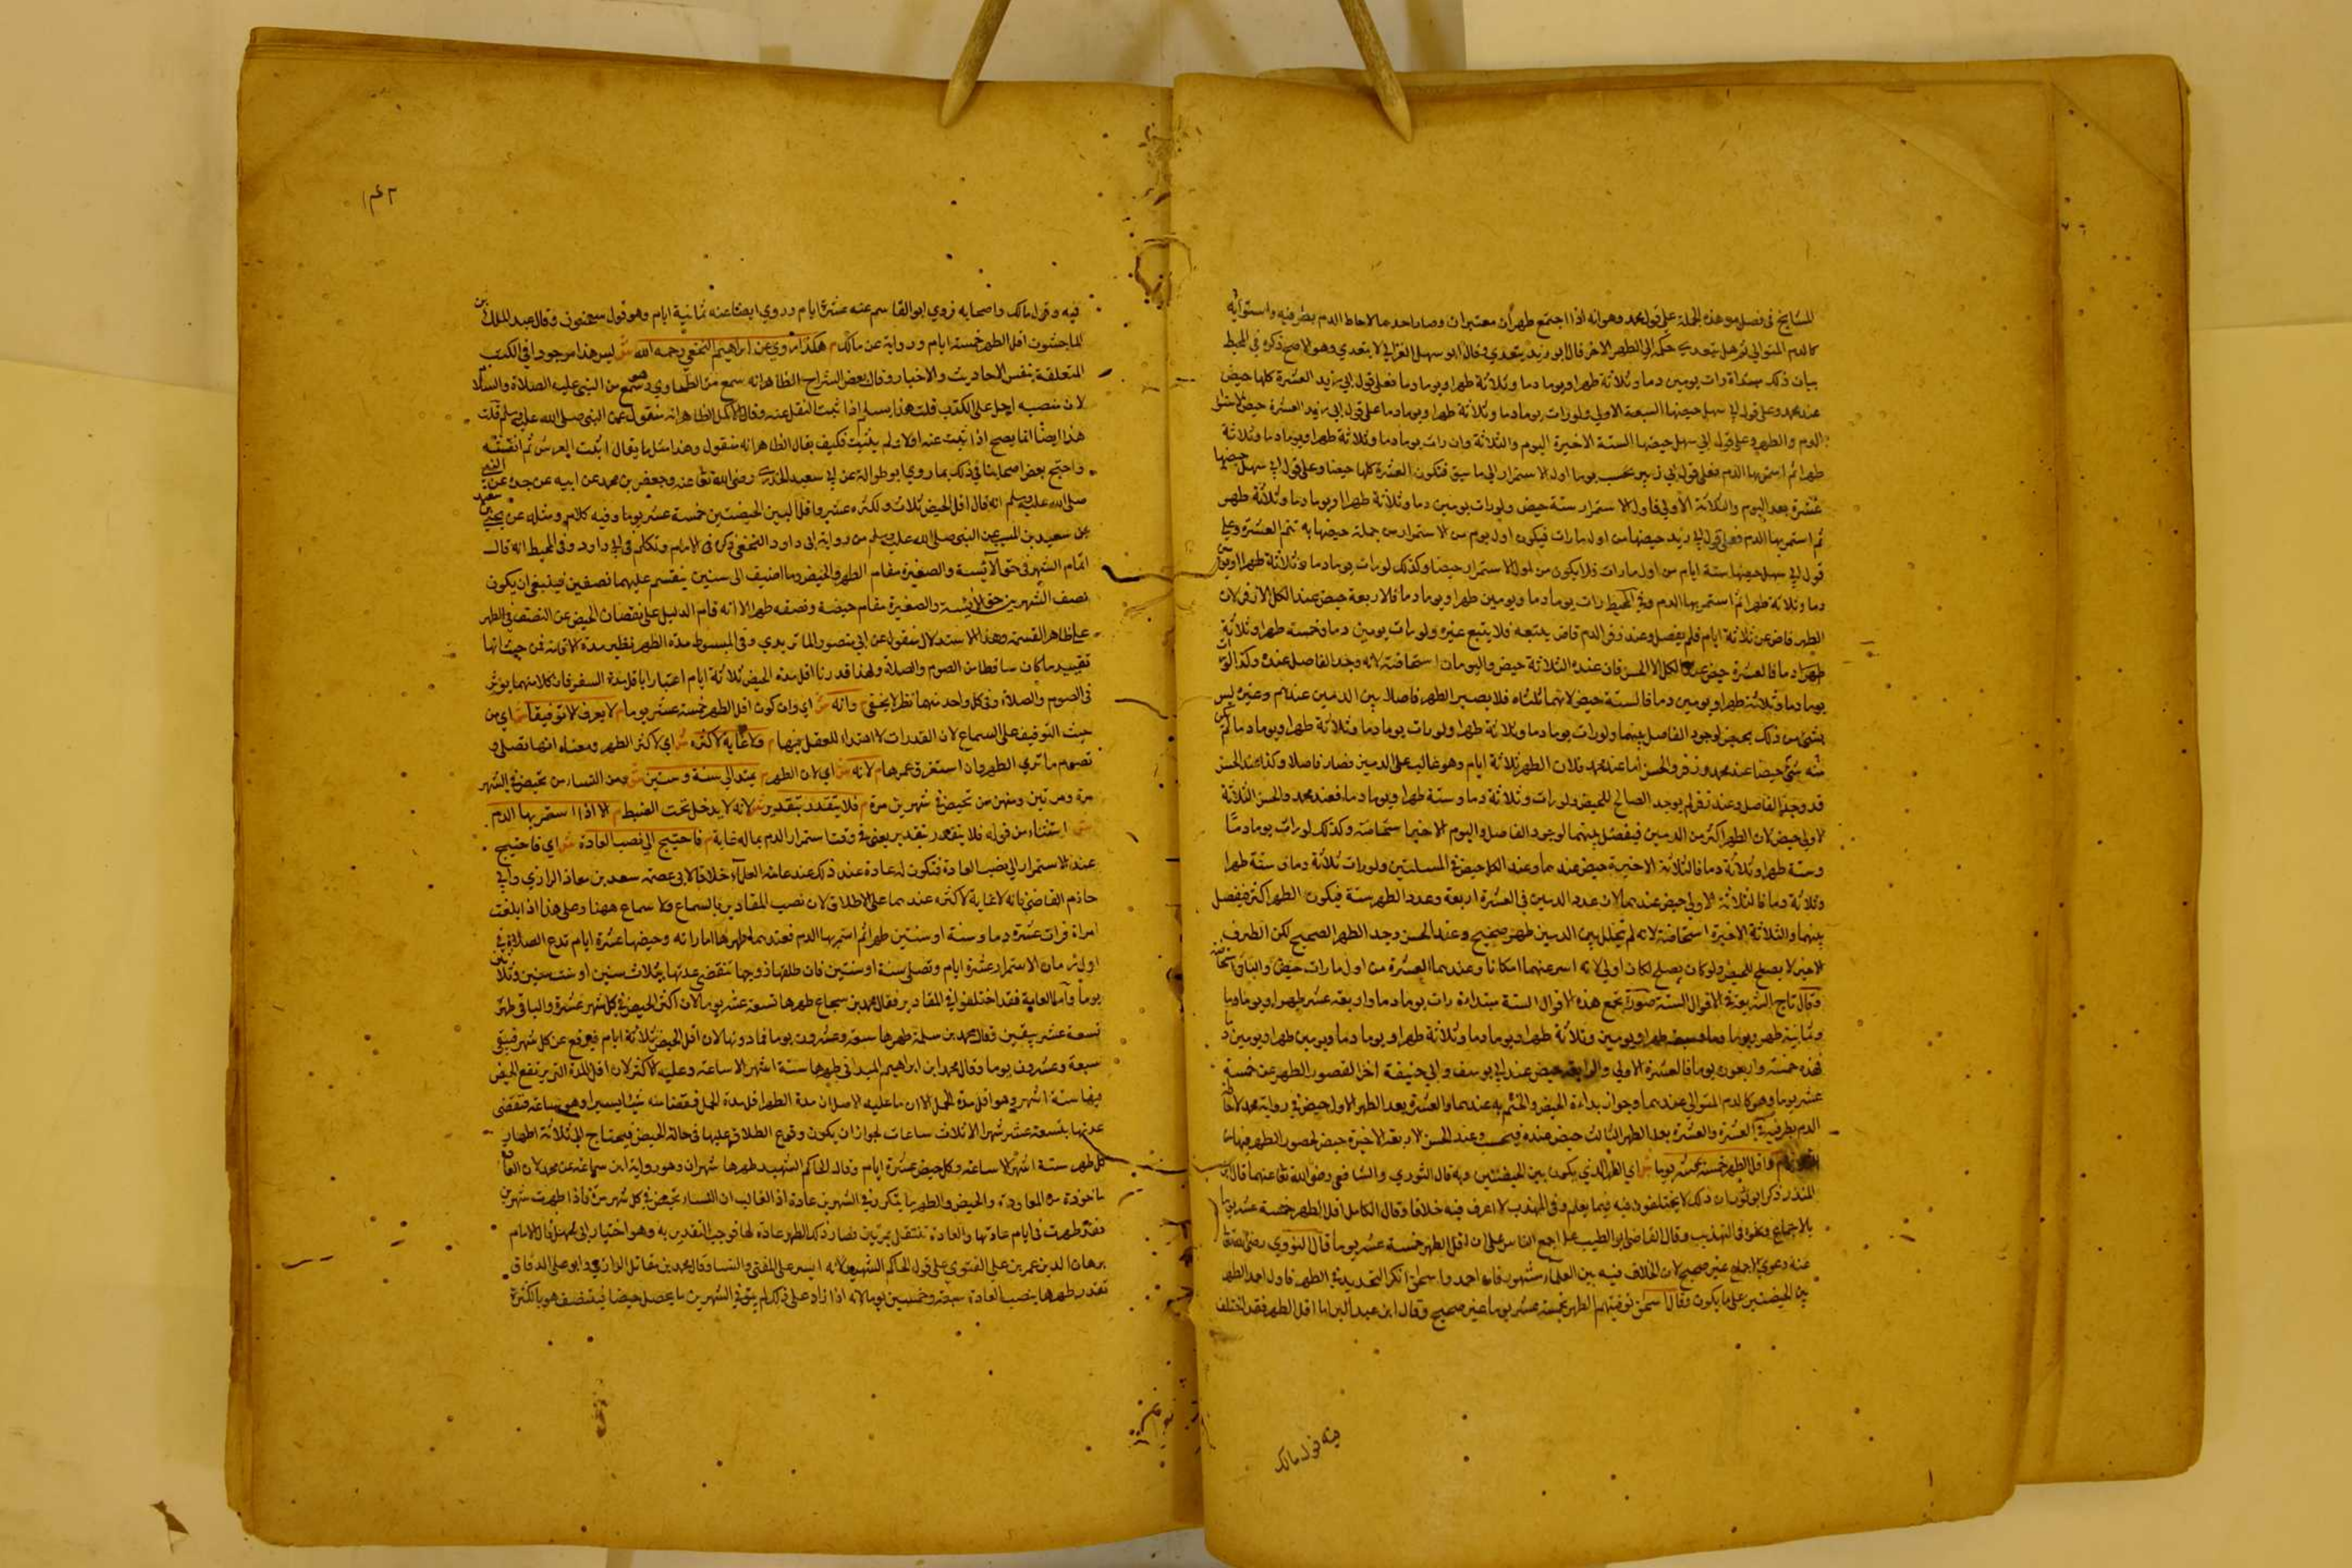 المشايخ في فصل من هذه الجملة على قول محمد وهو انه اذا اجتمع طهران معتبران وصار احدهما لاحاطة الدم بطرفيه واستوائه
كالدم المتوالي ثم هل يتعدى حكمه الى الطهر الاخر قال ابو زيد يتعدى وقال ابو سهل الغزالي لا يتعدى وهو الاصح ذكره في المحيط
بيان ذلك مبتداة رات يومين دما وثلاثة طهرا ويوما دما وثلاثة طهرا ويوما دما فعلى قول ابي زيد العشرة كلها حيض
عند محمد وعلى قول ابي سهل حيضها الستة الاولى ولو رات يوما دما وثلاثة طهرا ويوما دما على قول ابي زيد العشرة حيض
الدم والطهر وعلى قول ابي سهل حيضها الستة الاخيرة اليوم والثلاثة وان رات يوما دما وثلاثة طهرا ويوما دما وثلاثة
طهرا ثم استمر بها الدم فعلى قول ابي زيد يحسب يوما اول الاستمرار الى ما سبق فتكون العشرة كلها حيضا وعلى قول ابي سهل حيضها
عشرة بعد اليوم والثلاثة الاولى فاول الاستمرار ستة حيض ولو رات يومين دما وثلاثة طهرا ويوما دما وثلاثة طهر
ثم استمر بها الدم فعلى قول ابي زيد حيضها من اول ما رات فيكون اول يوم من الاستمرار من جملة حيضها به تتم العشرة وعلى
قول ابي سهل حيضها ستة ايام من اول ما رات فلا يكون من اول الاستمرار حيضا وكذلك لو رات يوما دما وثلاثة طهرا ويوما
دما وثلاثة طهرا ثم استمر بها الدم وفي المحيط رات يوما دما ويومين طهرا ويوما دما فالاربعة حيض عند الكل الا زفر لان
الطهر قاصر عن ثلاثة ايام فلم يفصل وعند زفر الدم قاض يتبعه فلا يتبع غيره ولو رات يومين دما وخمسة طهرا وثلاثة
طهرا دما فالعشرة حيض عند الكل الا الحسن فان عنده الثلاثة حيض واليومان استحاضة لانه وجد الفاصل عنده وكذا لو رات
يوما دما وثلاثة طهرا ويومين دما فالستة حيض لانهما ثلثاه فلا يصير الطهر فاصلا بين الدمين عندهم وعنده ليس
بشئ من ذلك بحيض لوجود الفاصل بينهما ولو رات يوما دما وثلاثة طهرا ولو رات يوما دما وثلاثة طهرا ويوما دما لم يكن
منه شئ حيضا عند محمد وزفر والحسن اما عند محمد فلان الطهر ثلاثة ايام وهو غالب على الدمين فصار فاصلا وكذا عند الحسن
قد وجد الفاصل وعند زفر لم يوجد الصالح للحيض ولو رات وثلاثة دما وستة طهرا ويوما دما فعند محمد والحسن الثلاثة
الاولى حيض لان الطهر اكثر من الدمين فيفصل بينهما لوجود الفاصل واليوم الاخير استحاضة وكذلك لو رات يوما دما
وستة طهرا وثلاثة دما فالثلاثة الاخيرة حيض عندهما وعند الكل حيض في المسلتين ولو رات ثلاثة دما وستة طهرا
وثلاثة دما فالثلاثة الاولى حيض عندهما لان عدد الدمين في العشرة اربعة وعدد الطهر ستة فيكون الطهر اكثر فيفصل
بينهما والثلاثة الاخيرة استحاضة لانه لم يتخلل بين الدمين طهر صحيح وعند الحسن وجد الطهر الصحيح لكن الطرف
الاخير لا يصلح للحيض ولو كان يصلح لكان اولى لانه اسرعهما امكانا وعندهما العشرة من اول ما رات حيض والباقي استحاضة
وقال تاج الشريعة في الاقوال الستة صورة تجمع هذه الاقوال الستة مبتداة رات يوما دما واربعة عشر طهرا ويوما دما
وثمانية طهر ويوما دما وسبعة طهرا ويومين وثلاثة طهرا ويوما دما وثلاثة طهرا ويوما دما ويومين طهرا ويومين د
فهذه خمسة واربعون يوما فالعشرة الاولى والرابعة حيض عند ابي يوسف وابي حنيفة اخرا لقصور الطهر عن خمسة
عشر يوما وهو كالدم المتوالي عندهما وجواز بداءة الحيض والختم به عندهما والعشرة بعد الطهر الاول حيض في رواية محمد لاحاطة
الدم بطرفي العشرة والعشرة بعد الطهر الثالث حيض عنده فحسب وعند الحسن الاربعة الاخيرة حيض لحصور الطهر فيها من
م واقل الطهر خمسة عشر يوما ش اي الطهر الذي يكون بين الحيضتين وبه قال الثوري والشافعي رضي الله تعا عنهما قال ابن
المنذر ذكر ابو ثور ان ذلك لا يختلفون فيه فيما يعلم وفي المهذب لا اعرف فيه خلافا وقال الكامل اقل الطهر خمسة عشر يوما
بالاجماع ونحوه في التهذيب وقال القاضي ابو الطيب على اجمع الناس على ان اقل الطهر خمسة عشر يوما قال النووي رضي الله تعا
عنه دعوى الاجماع غير صحيح لان الخلاف فيه بين العلماء مشهور فان احمد واسحق انكر التحديد في الطهر فاول احمد الطهر
بين الحيضتين على ما يكون وقال اسحق توقيتهم الطهر بخمسة عشر يوما غير صحيح وقال ابن عبد البر اما اقل الطهر فقد اختلف
فيه قول مالك
١٤٢
فيه وقول مالك واصحابه فروي ابو القاسم عنه عشرة ايام وروي ايضا عنه ثمانية ايام وهو قول سحنون وقال عبد الملك بن
الماجشون اقل الطهر خمسة ايام ورواية عن مالك م هكذا روي عن ابراهيم النخعي رحمه الله ش ليس هذا موجود في الكتب
المتعلقة بنفس الاحاديث والاخبار وقال بعض الشراح الظاهر انه سمع من الطحاوي وسمع من النبي عليه الصلاة والسلا
لان منصبه اجل على الكذب قلت هذا يسلم اذا ثبت النقل عنه وقال الاكمل الظاهر انه منقول عن النبي صلى الله عليه وسلم قلت
هذا ايضا انما يصح اذا ثبت عنه اولا ولم يثبت فكيف يقال الظاهر انه منقول وهذا مثل ما يقال اثبت العرش ثم انقشه
واحتج بعض اصحابنا في ذلك بما روي ابو طوالة عن ابي سعيد الخدري رضي الله تعا عنه وجعفر بن محمد عن ابيه عن جده عن النبي
صلى الله عليه وسلم انه قال اقل الحيض ثلاث واكثره عشر واقل ما بين الحيضتين خمسة عشر يوما وفيه كلام ومثله عن يحيى بن سعيد
عن سعيد بن المسيب عن النبي صلى الله عليه وسلم من رواية ابي داود النخعي ذكره في الامام وتكلم في ابي داود وفي المحيط انه قال
اقام الشهر في حق الآئسة والصغيرة مقام الطهر والحيض وما اضيف الى سنين ينقسم عليهما نصفين فينبغي ان يكون
نصف الشهر من حق الآئسة والصغيرة مقام حيضة ونصفه طهر الا انه قام الدليل على نقصان الحيض عن النصف في الطهر
على ظاهر القسمة وهذا الاستدلال منقول عن ابي منصور الماتريدي وفي المبسوط مدة الطهر نظير مدة الاقامة من حيث انها
تقييد ما كان ساقطا من الصوم والصلاة ولهذا قدرنا اقل مدة الحيض ثلاثة ايام اعتبارا باقل مدة السفر فان كلا منهما يؤثر
في الصوم والصلاة وفي كل واحد منهما نظر لا يخفى م وانه ش اي وان كون اقل الطهر خمسة عشر يوما م لا يعرف الا توقيفا ش اي من
حيث التوقيف على السماع لان المقدرات لا اهتداء للعقل فيها م ولا غاية لاكثره ش اي لاكثر الطهر ومعناه انها تصلي و
تصوم ما تري الطهر وان استغرق عمرها م لانه ش اي لان الطهر م يمتد الى سنة وسنتين ش ومن النساء من تحيض في الشهر
مرة ومرتين ومنهن من تحيض في شهرين مرة م فلا يتقدر بتقدير ش لانه لا يدخل تحت الضبط م الا اذا استمر بها الدم
ش استثناء من قوله فلا يتقدر بتقدير يعني في وقت استمرار الدم بها له غاية م فاحتيج الى نصب العادة ش اي فاحتيج
عند الاستمرار الى نصب العادة فتكون له عادة عند ذلك عند عامة العلماء خلافا لابي عصمة سعد بن معاذ الرازي وابي
حازم القاضي فانه لا غاية لاكثره عندهما على الاطلاق لان نصب المقادير بالسماع ولا سماع ههنا وعلى هذا اذا بلغت
امراة فرات عشرة دما وسنة او سنتين طهرا ثم استمر بها الدم فعندهما طهرها ما رات وحيضها عشرة ايام تدع الصلاة في
اول زمان الاستمرار عشرة ايام وتصلي سنة او سنتين فان طلقها زوجها تنقضي عدتها بثلاث سنين او ست سنين وثلاثين
يوما واما العامة فقد اختلفوا في المقادير فقال محمد بن شجاع طهرها تسعة عشر يوما لان اكثر الحيض في كل شهر عشرة والباقي طهر
تسعة عشر بيقين وقال محمد بن سلمة طهرها سبعة وعشرون يوما فما دونها لان اقل الحيض ثلاثة ايام فيرفع عن كل شهر فيبقى
سبعة وعشرون يوما وقال محمد ابن ابراهيم الميداني طهرها ستة اشهر الا ساعة وعليه الاكثر لان اقل المدة التي يرتفع الحيض
فيها ستة اشهر وهو اقل مدة الحمل الا ان ما عليه الاصل ان مدة الطهر اقل مدة الحمل فنقصنا منه شيئا يسيرا وهو ساعة فتنقضي
عدتها بتسعة عشر شهرا الا ثلاث ساعات لجواز ان يكون وقوع الطلاق عليها في حالة الحيض فيحتاج الى ثلاثة اطهار
كل طهر ستة اشهر الا ساعة وكل حيض عشرة ايام وقال الحاكم الشهيد طهرها شهران وهو رواية ابن سماعة عن محمد لان العا
ماخوذة من المعاودة والحيض والطهر ما يتكرر في الشهرين عادة اذ الغالب ان النساء تحيض في كل شهر مرة فاذا طهرت شهرين
فقد طهرت في ايام عادتها والعادة تنتقل بمرتين فصار ذلك الطهر عادة لها فوجب التقدير به وهو اختيار ابي سهل قال الامام
برهان الدين عمر بن علي الفتوى على قول الحاكم الشهيد لانه ايسر على المفتي والنسا وقال محمد بن مقاتل الرازي وابو علي الدقاق
تقدر طهرها بنصب العادة سبعة وخمسين يوما لانه اذا زاد على ذلك لم يبق في الشهرين ما يحصل حيضا فينتصف هو باكثره